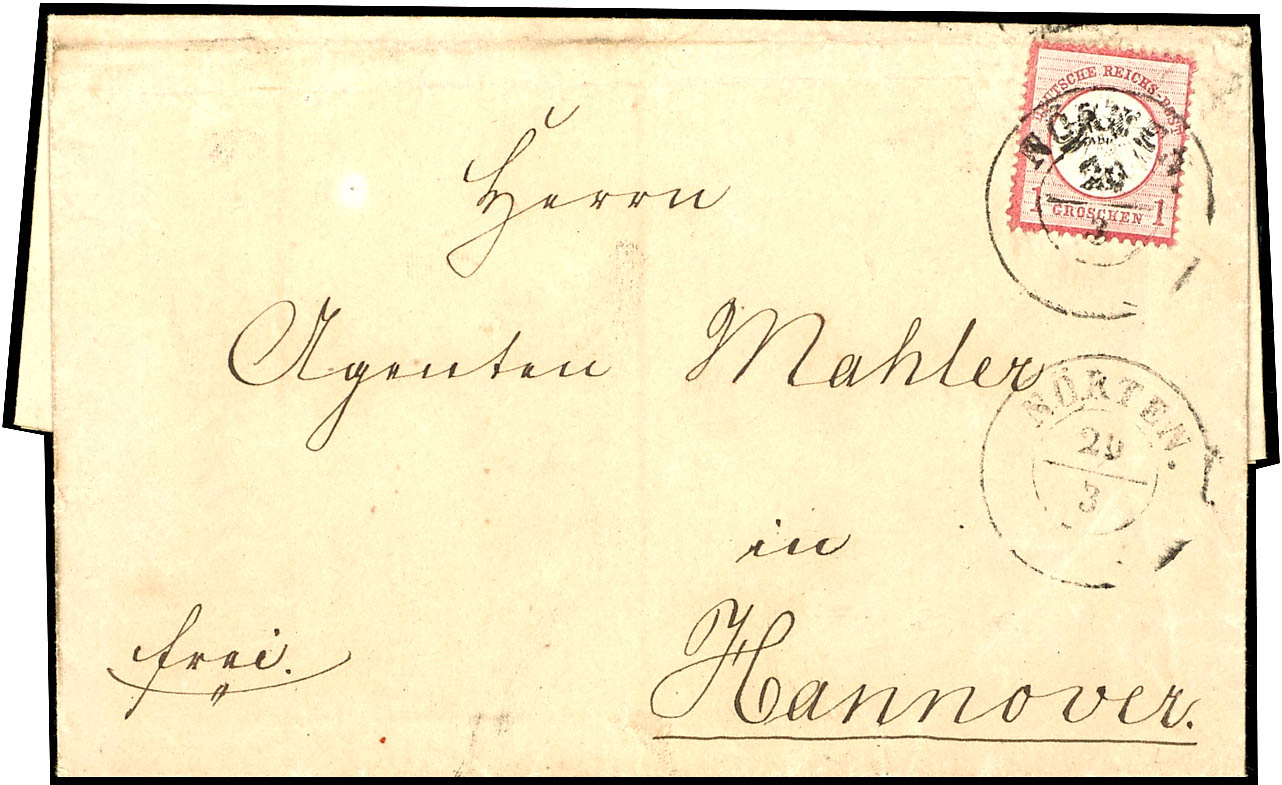 DEUTSCHE REICHS-POST
1 GROSCHEN 1
3
Herrn
Agenten Mahler
NÖRTEN.
29
3
in
Hannover.
frei.